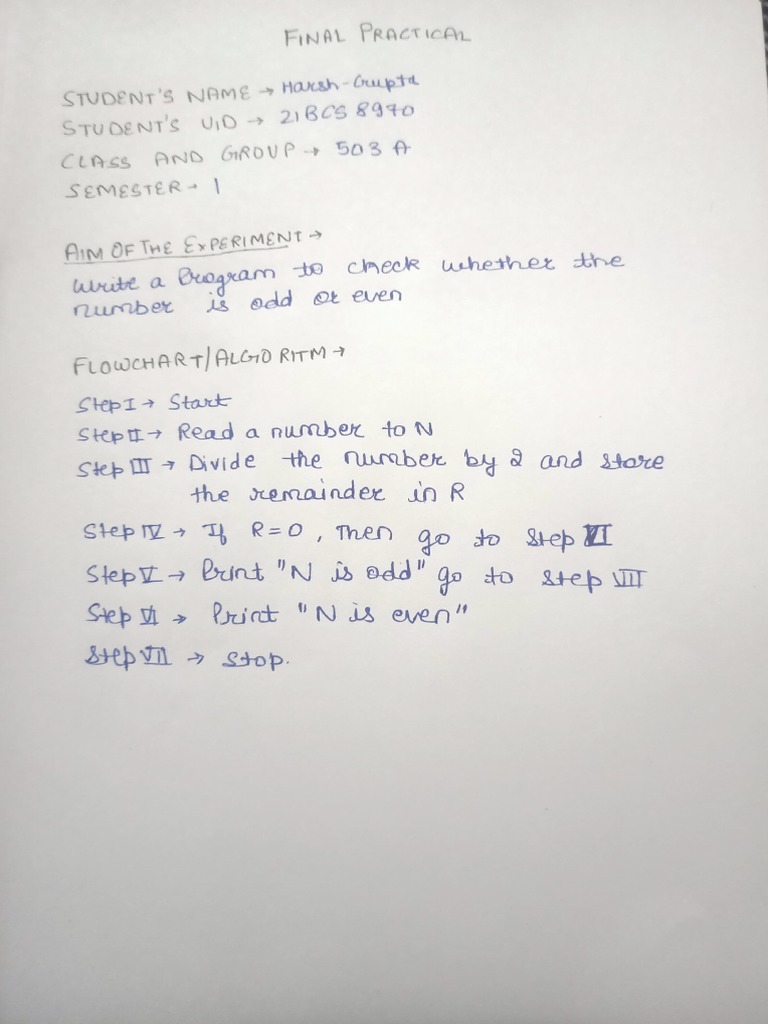 FINAL PRACTICAL
STUDENT'S NAME → Harsh Gupta
STUDENT'S UID → 21BCS8970
CLASS AND GROUP → 503 A
SEMESTER → 1
AIM OF THE EXPERIMENT →
Write a Program to check whether the
number is odd or even
FLOWCHART/ALGORITM →
Step I → Start
Step II → Read a number to N
Step III → Divide the number by 2 and store
the remainder in R
Step IV → If R=0, Then go to Step VI
Step V → Print "N is odd" go to step VIII
Step VI → Print "N is even"
Step VII → Stop.